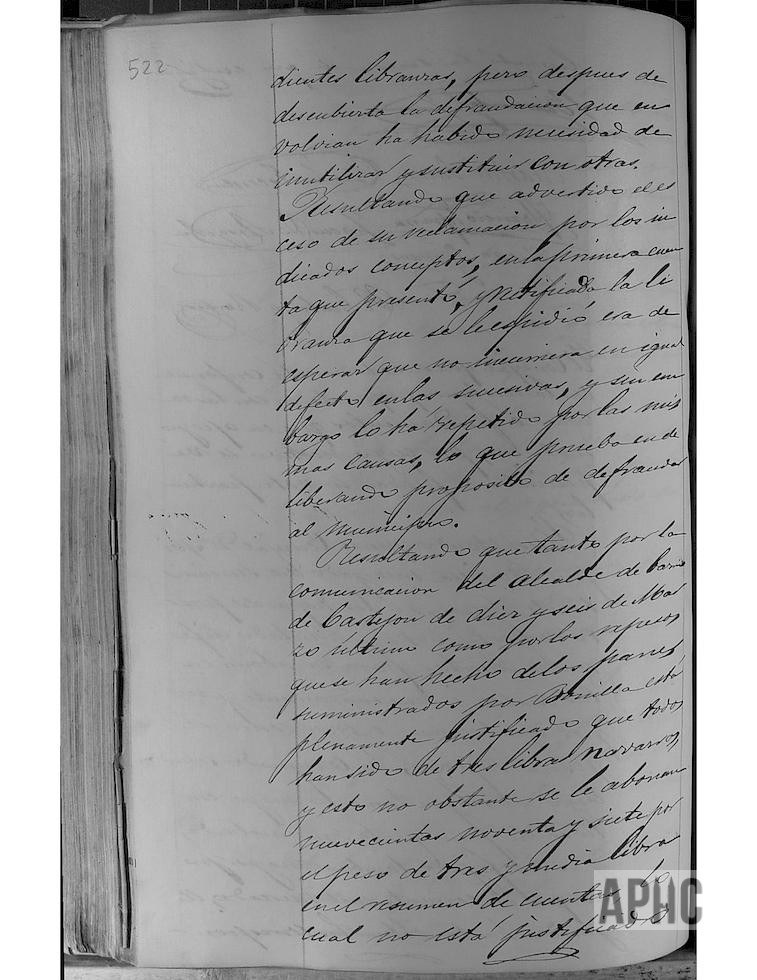 522
dientes libranzas, pero despues de
descubierta la defraudacion que en
volvian ha habido necesidad de
inutilizar y sustituir con otras.
Resultando que advertido el es
ceso de su reclamacion por los in
dicados conceptos, en la primera cuen
ta que presentó, y notificada la li
branza que se le espidió era de
esperar que no incurriera en igual
defecto en las sucesivas, y sin em
bargo lo ha repetido por las mis
mas causas, lo que prueba un de
liberando proposito de defraudar
al municipio.
Resultando que tanto por la
comunicacion del Alcalde de barrio
de Castejon de diez y seis de Mar
zo ultimo como por los repesos
que se han hecho de los panes
suministrados por Bonilla está
plenamente justificado que todos
han sido de tres libras navarras,
y esto no obstante se le abonan
nuevecientas noventa y siete por
el peso de tres y media libra
en el resumen de cuentas lo
cual no está justificado
APHC